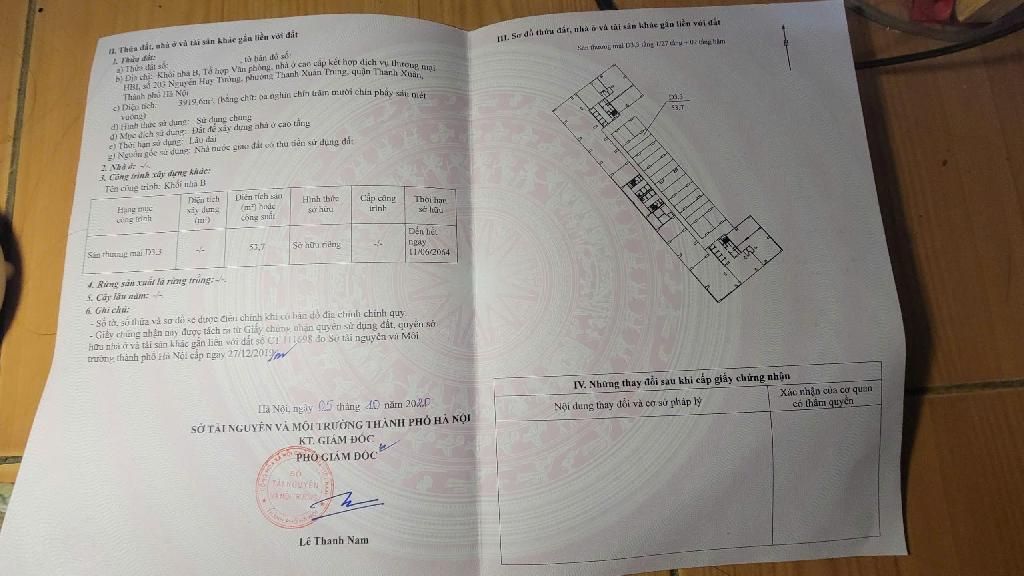 II. Thửa đất, nhà ở và tài sản khác gắn liền với đất
1. Thửa đất:
a) Thửa đất số: , tờ bản đồ số:
b) Địa chỉ: Khối nhà B, Tổ hợp Văn phòng, nhà ở cao cấp kết hợp dịch vụ thương mại
HBI, số 203 Nguyễn Huy Tưởng, phường Thanh Xuân Trung, quận Thanh Xuân,
Thành phố Hà Nội
c) Diện tích: 3919,6m², (bằng chữ: ba nghìn chín trăm mười chín phảy sáu mét
vuông)
d) Hình thức sử dụng: Sử dụng chung
đ) Mục đích sử dụng: Đất để xây dựng nhà ở cao tầng
e) Thời hạn sử dụng: Lâu dài
g) Nguồn gốc sử dụng: Nhà nước giao đất có thu tiền sử dụng đất
2. Nhà ở: -/-
3. Công trình xây dựng khác:
Tên công trình: Khối nhà B
Hạng mục công trình
Diện tích xây dựng (m²)
Diện tích sàn (m²) hoặc công suất
Hình thức sở hữu
Cấp công trình
Thời hạn sở hữu
Sàn thương mại D3.3
-/-
53,7
Sở hữu riêng
-/-
Đến hết ngày 11/06/2064
4. Rừng sản xuất là rừng trồng: -/-
5. Cây lâu năm: -/-
6. Ghi chú:
- Số tờ, số thửa và sơ đồ sẽ được điều chỉnh khi có bản đồ địa chính chính quy.
- Giấy chứng nhận này được tách ra từ Giấy chứng nhận quyền sử dụng đất, quyền sở
hữu nhà ở và tài sản khác gắn liền với đất số CT 111698 do Sở tài nguyên và Môi
trường thành phố Hà Nội cấp ngày 27/12/2019
Hà Nội, ngày 05 tháng 10 năm 2020
SỞ TÀI NGUYÊN VÀ MÔI TRƯỜNG THÀNH PHỐ HÀ NỘI
KT. GIÁM ĐỐC
PHÓ GIÁM ĐỐC
SỞ
TÀI NGUYÊN
VÀ MÔI TRƯỜNG
Lê Thanh Nam
III. Sơ đồ thửa đất, nhà ở và tài sản khác gắn liền với đất
Sàn thương mại D3.3 tầng 1/27 tầng + 02 tầng hầm
D3.3
53,7
IV. Những thay đổi sau khi cấp giấy chứng nhận
Nội dung thay đổi và cơ sở pháp lý
Xác nhận của cơ quan
có thẩm quyền